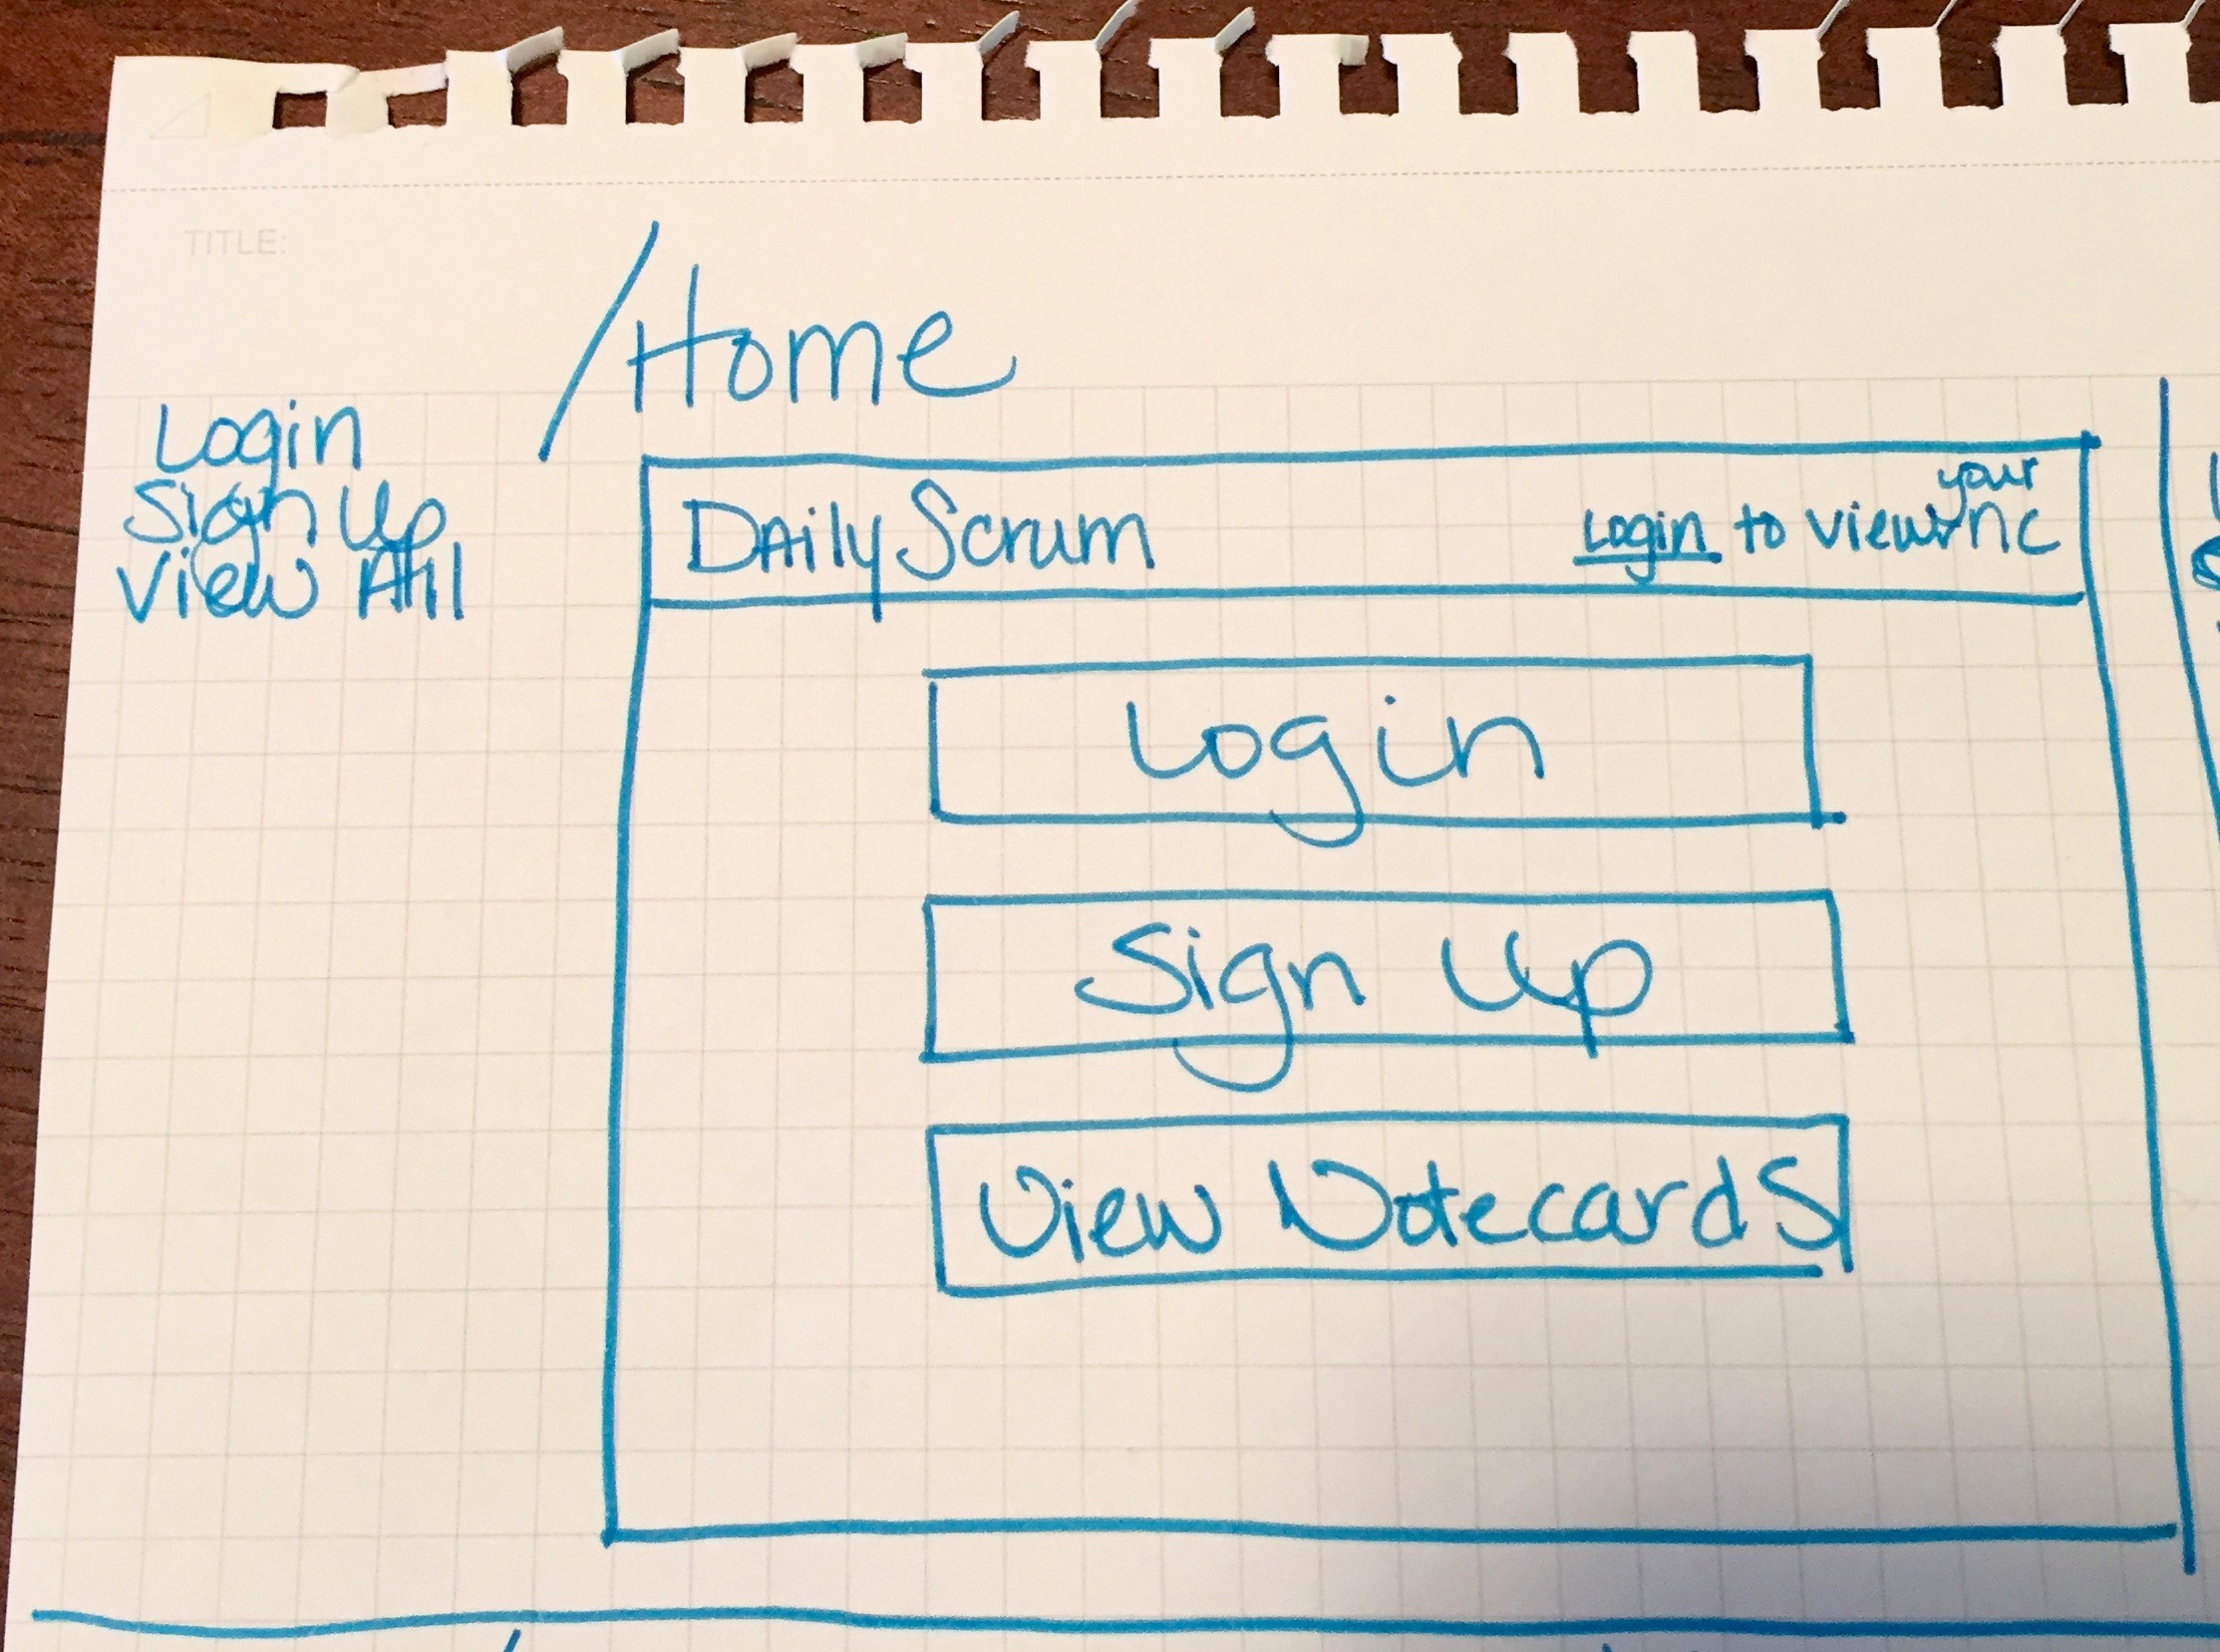 TITLE:
/Home
Login
Sign Up
View All
Daily Scrum
Login to view your NC
Login
Sign Up
View Notecards